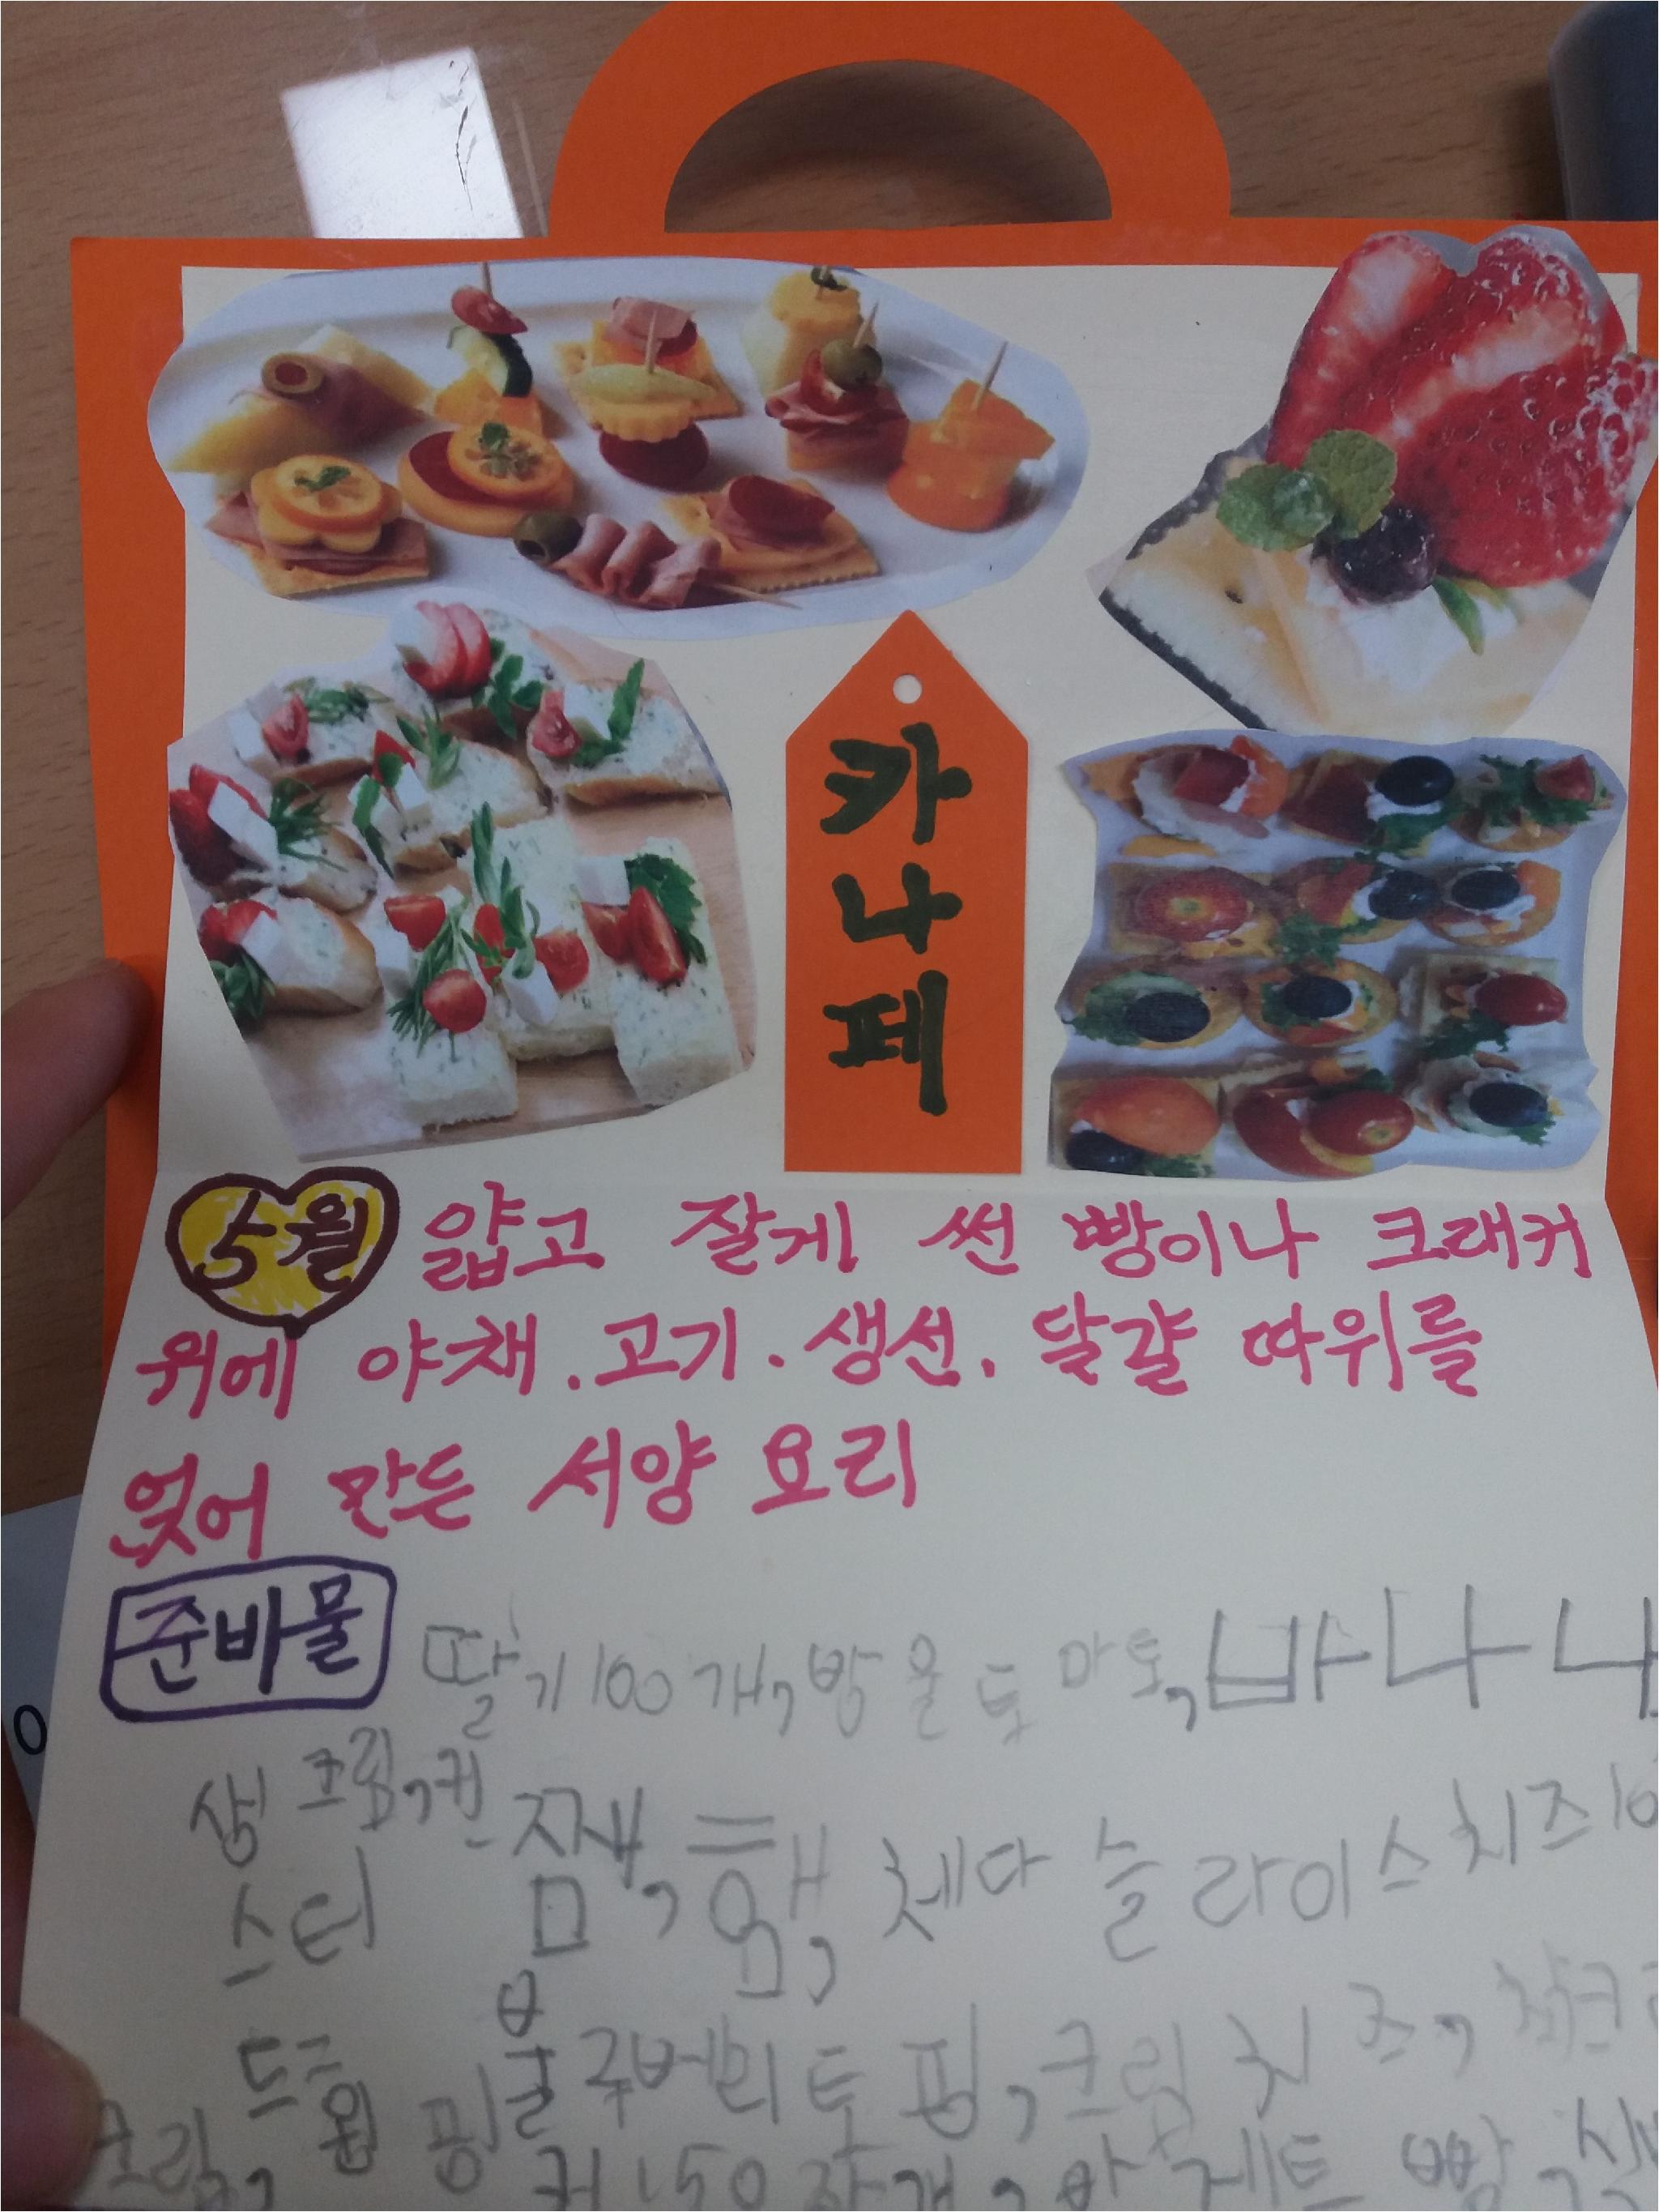 카나페
5월 얇고 잘게 썬 빵이나 크래커
위에 야채.고기.생선.달걀 따위를
얹어 만든 서양 요리
준비물 딸기100개,방울토마토,바나나
생크림,
스터
쨈,햄,체다 슬라이스치즈10
블루베리토핑,크림치즈,
크림,휘핑
커150장개,바게트 빵,